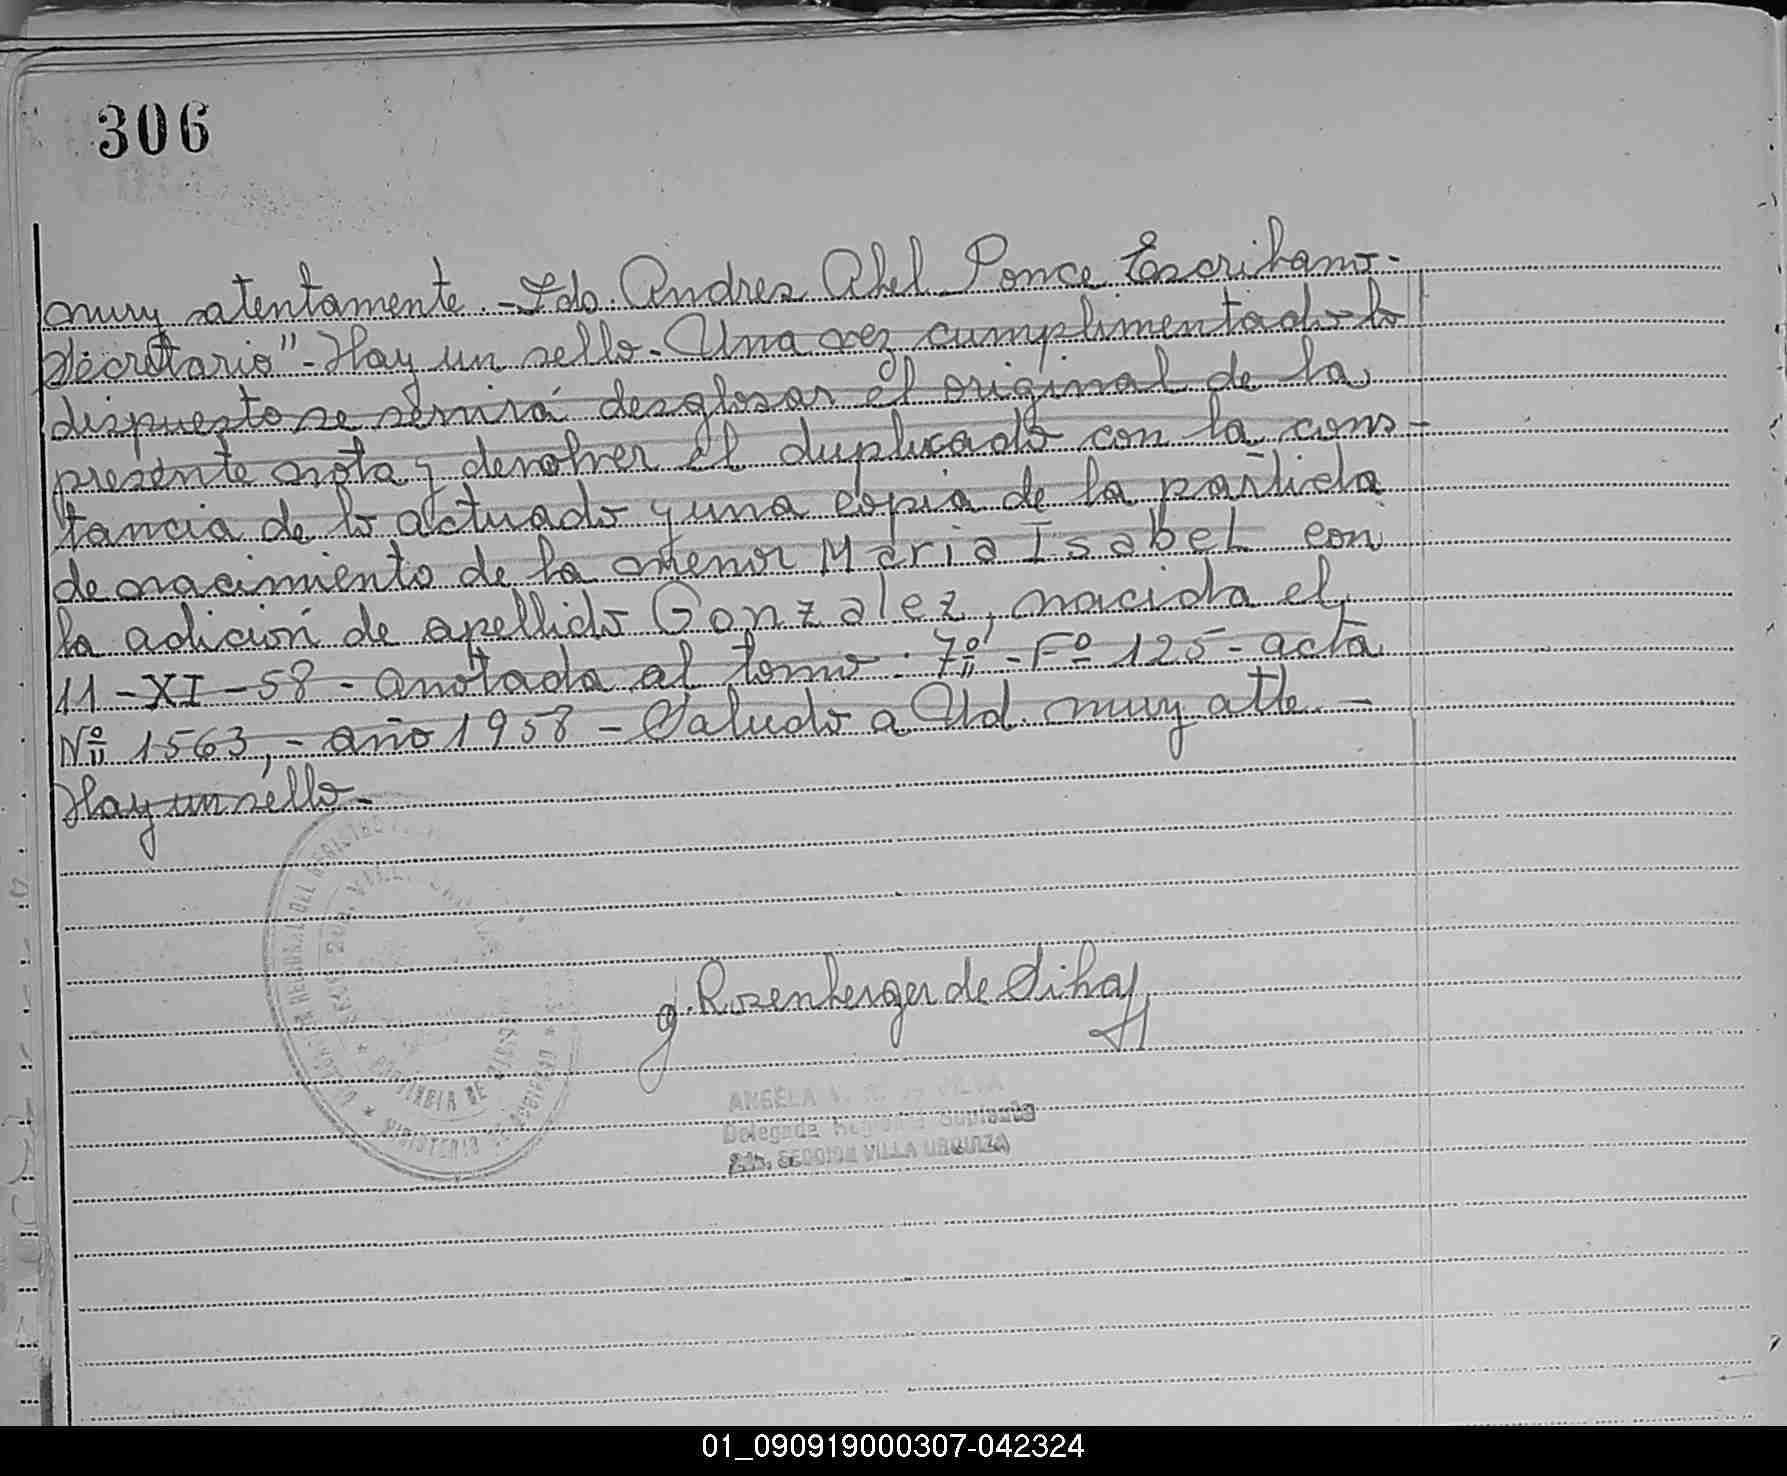 306
muy atentamente.-Fdo. Andres Abel Ponce Escribano-
Secretario"-Hay un sello.-Una vez cumplimentado lo
dispuesto se servirá desglosar el original de la
presente nota y devolver el duplicado con la cons-
tancia de lo actuado y una copia de la partida
de nacimiento de la menor Maria Isabel con
la adición de apellido Gonzalez, nacida el
11-XI-58-anotada al tomo: 7º-Fº 125-acta
Nº 1563,-año 1958-Saludo a Ud. muy atte.-
Hay un sello-
REGIONAL DEL REGISTRO
* PROVINCIA DE
* MINISTERIO DE
g. Rosenberger de Silva
ANGELA
Delegada Regional Suplente
2da. SECCION VILLA URQUIZA
01_090919000307-042324